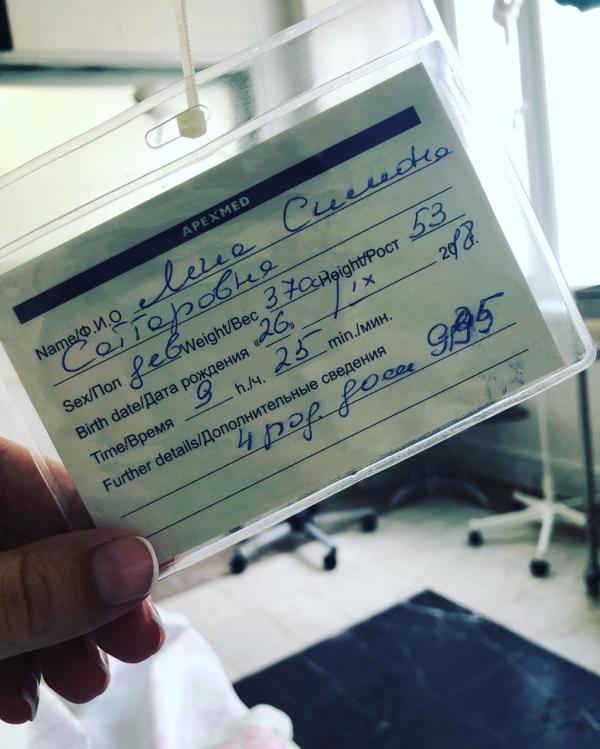 APEXMED
Name/Ф.И.О Лина Симона
Саттаровна
Sex/Пол дев Weight/Вес Height/Рост 53
Birth date/Дата рождения «26» IX 2018.
Time/Время 9 h./ч. 25 min./мин.
Further details/Дополнительные сведения
4 род. доси